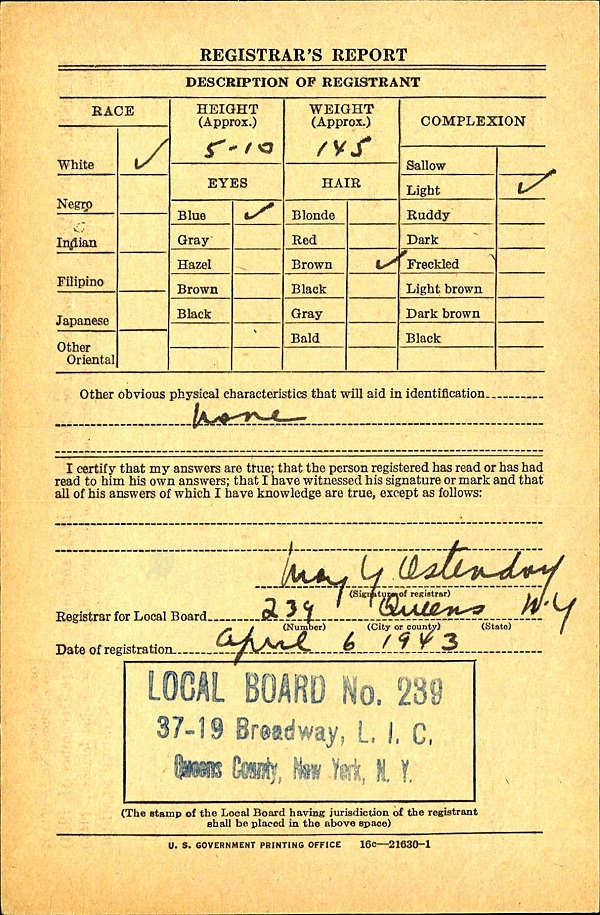 REGISTRAR'S REPORT
DESCRIPTION OF REGISTRANT
RACE
HEIGHT
(Approx.)
WEIGHT
(Approx.)
COMPLEXION
5-10
145
White ✓
Negro
Indian
Filipino
Japanese
Other
Oriental
EYES
Blue ✓
Gray
Hazel
Brown
Black
HAIR
Blonde
Red
Brown ✓
Black
Gray
Bald
Sallow
Light ✓
Ruddy
Dark
Freckled
Light brown
Dark brown
Black
Other obvious physical characteristics that will aid in identification
none
I certify that my answers are true; that the person registered has read or has had
read to him his own answers; that I have witnessed his signature or mark and that
all of his answers of which I have knowledge are true, except as follows:
May Y
(Signature of registrar)
Registrar for Local Board 239 Queens N.Y
(Number) (City or county) (State)
Date of registration April 6 1943
LOCAL BOARD No. 239
37-19 Broadway, L. I. C.
Queens County, New York, N. Y.
(The stamp of the Local Board having jurisdiction of the registrant
shall be placed in the above space)
U. S. GOVERNMENT PRINTING OFFICE 16c—21630-1